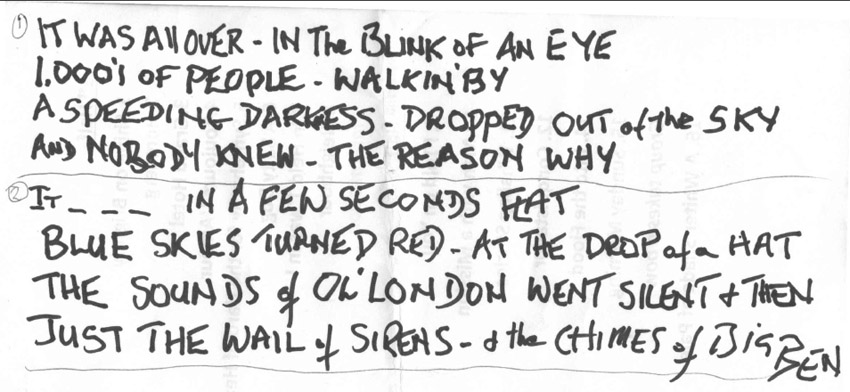 ① IT WAS All OVER - IN The BLINK OF AN EYE
1.000's OF PEOPLE - WALKIN' BY
A SPEEDING DARKNESS - DROPPED OUT of the SKY
AND NOBODY KNEW - THE REASON WHY
② IT _ _ _ IN A FEW SECONDS FLAT
BLUE SKIES TURNED RED - AT THE DROP of a HAT
THE SOUNDS of OL' LONDON WENT SILENT & THEN
JUST THE WAIL of SIRENS - & the CHIMES of BIG BEN